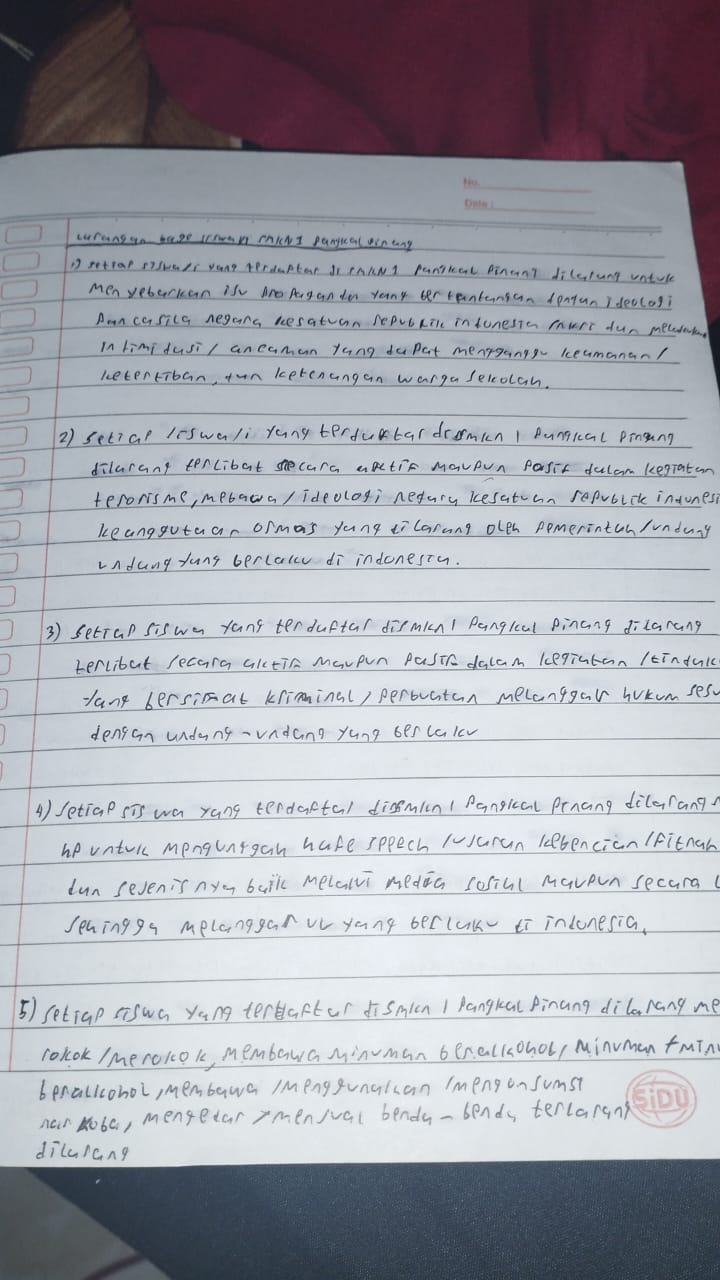 No.
Date :
Larangan bagi siswa/i SMKN 1 Pangkal Pinang
1) Setiap siswa/i yang terdaptar di SMKN 1 Pangkal Pinang dilarang untuk
Menyebarkan isu propaganda yang bertentangan dengan ideologi
Pancasila negara kesatuan republik indonesia dan
intimidasi / ancaman yang dapat mengganggu keamanan /
ketertiban, dan ketenangan warga sekolah.
2) Setiap siswa/i yang terdaftar di smkn 1 Pangkal Pinang
dilarang terlibat secara aktif maupun pasif dalam kegiatan
terorisme, mebawa / ideologi negara kesatuan republik indonesi
keanggutaan ormas yang dilarang oleh pemerintah / undang
undang yang berlaku di indonesia.
3) Setiap siswa yang terdaftar dismkn 1 Pangkal Pinang dilarang
terlibat secara aktif maupun pasif dalam kegiatan / tindak
yang bersifat kriminal / perbuatan melanggar hukum sesu
dengan undang-undang yang berlaku
4) Setiap siswa yang terdaftar dismkn 1 Pangkal Penang dilarang
hp untuk mengunggah hate speech / ujaran kebencian / fitnah
dan sejenisnya baik melalui media sosial maupun secara l
sehingga melanggar UU yang berlaku di indonesia.
5) Setiap siswa yang terdaftar dismkn 1 Pangkal Pinang dilarang me
rokok / merokok, membawa minuman beralkohol, minuman + minu
beralkohol, membawa / menggunakan / mengonsumsi
narkoba, mengedar > menjual benda-benda terlarang
dilarang
SiDU